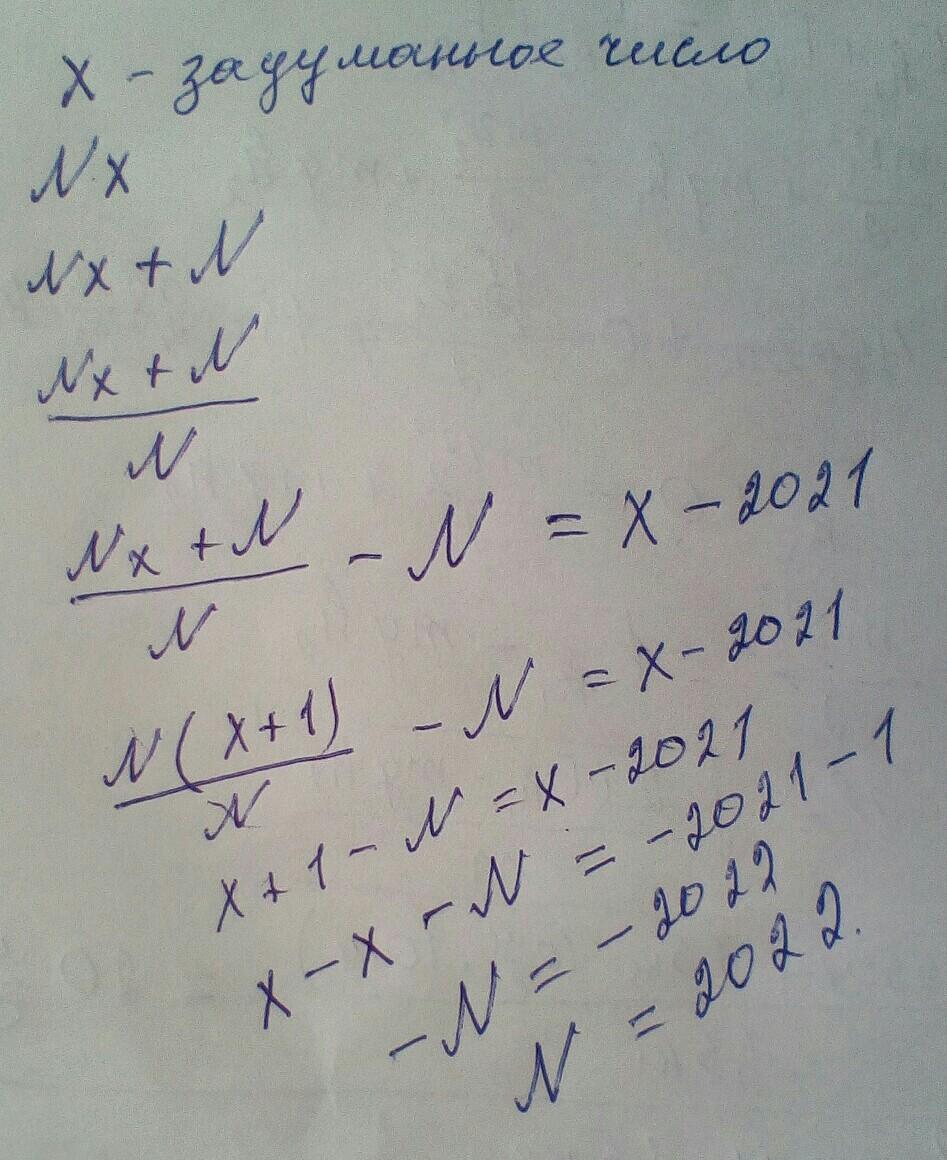 x - задуманное число
Nx
Nx + N
Nx + N
N
Nx + N / N - N = x - 2021
N(x+1) / N - N = x - 2021
x + 1 - N = x - 2021
x - x - N = -2021 - 1
-N = -2022
N = 2022.